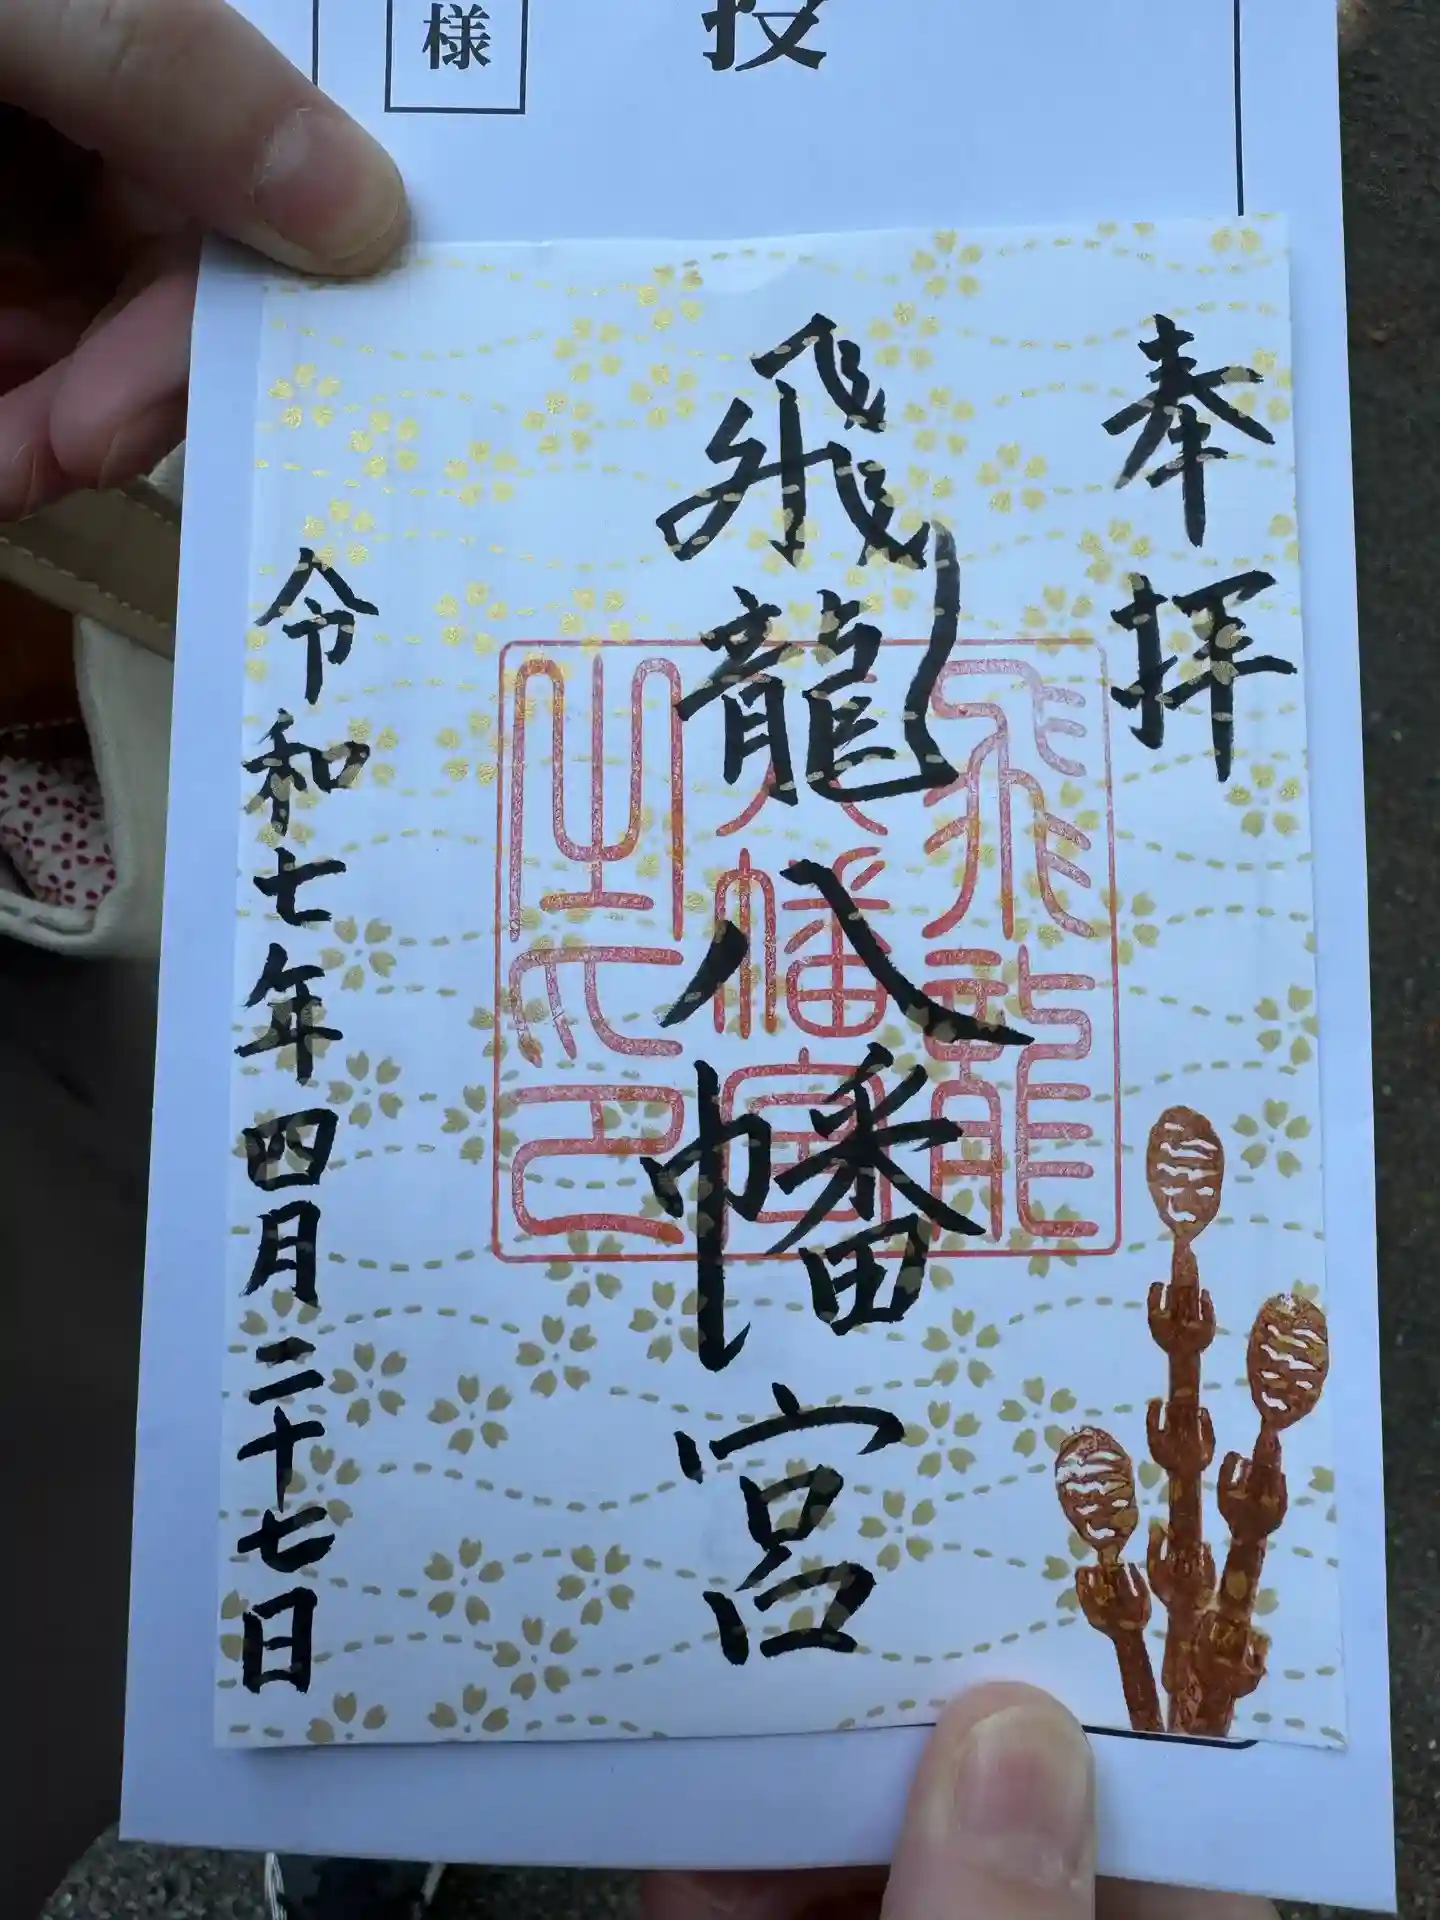 様
授
奉拝
飛龍八幡宮
令和七年四月二十七日
飛龍
八幡宮
之印